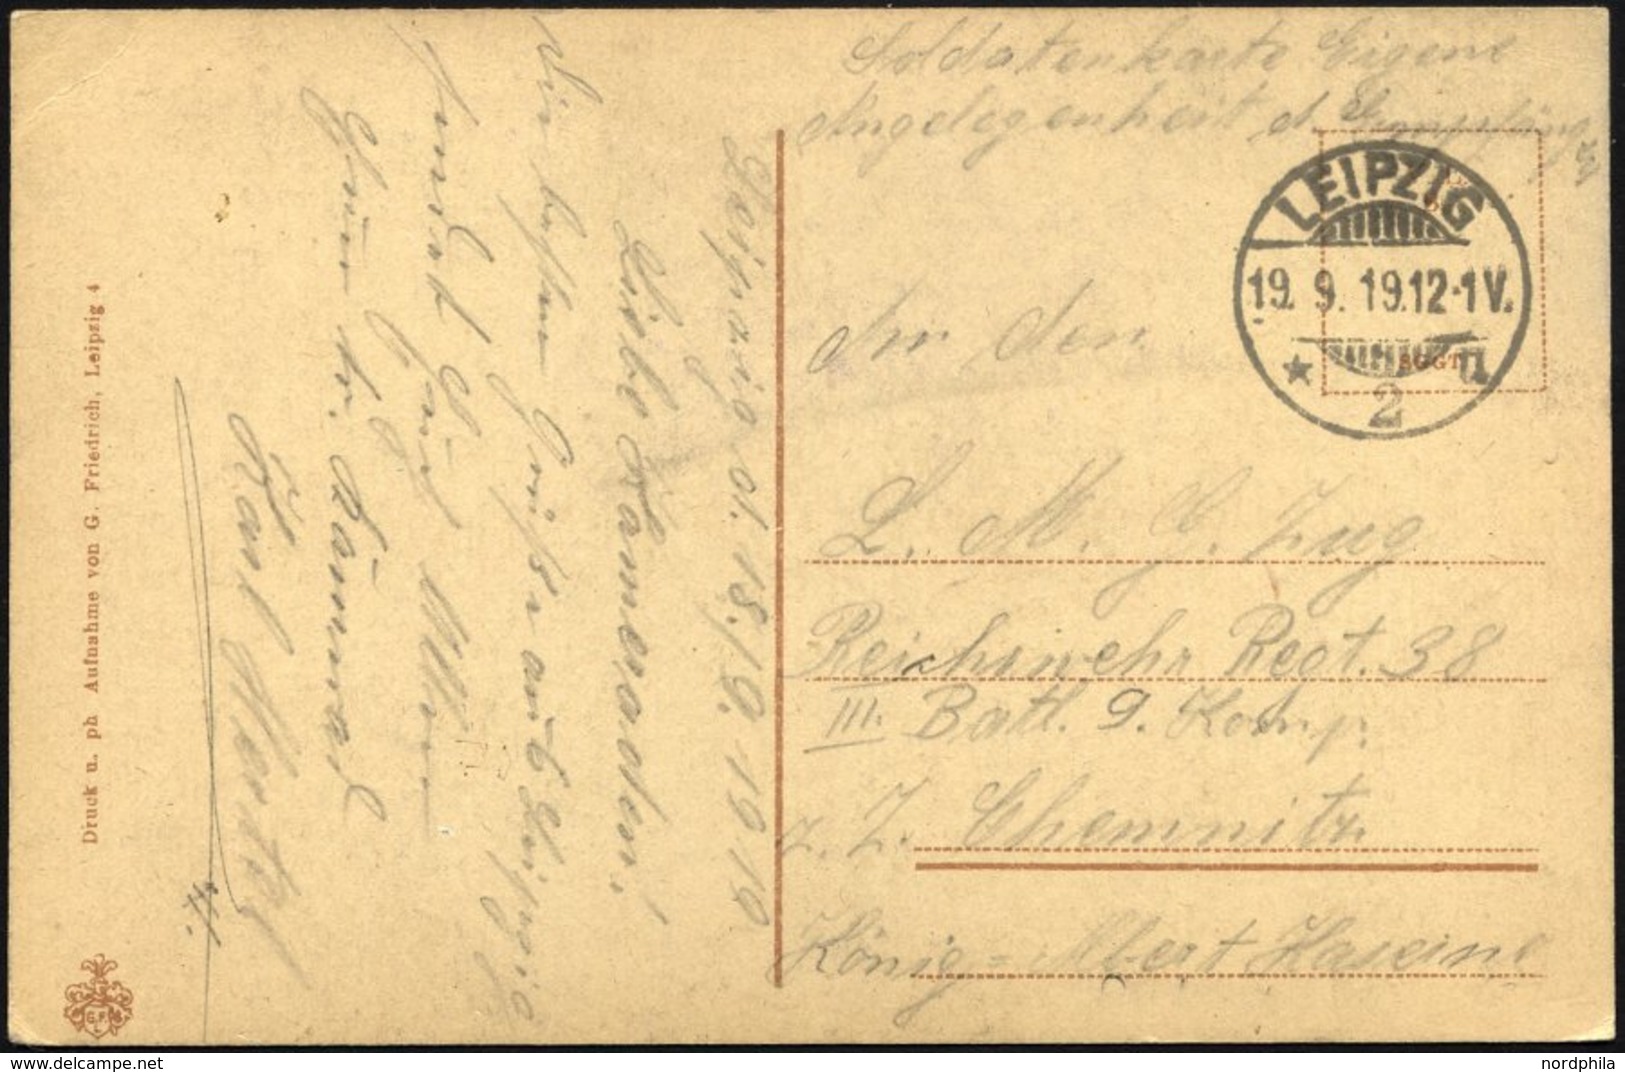 Soldatenkarte Eigene
Angelegenheit d. Empfängers
LEIPZIG
19. 9. 19.12-1V.
* 2 u
EGGT
An den
L. M. G. Zug
Reichswehr Regt. 38
III. Batl. 9. Komp.
z. Z. Chemnitz
König-Albert Kaserne
Leipzig d. 18./9. 1919
Liebe Kameraden!
Die besten Grüße aus Leipzig
sendet Euch Allen
Euer tr. Kamerad
Karl
Druck u. ph Aufnahme von G. Friedrich, Leipzig 4
G.F.
L
nordphila